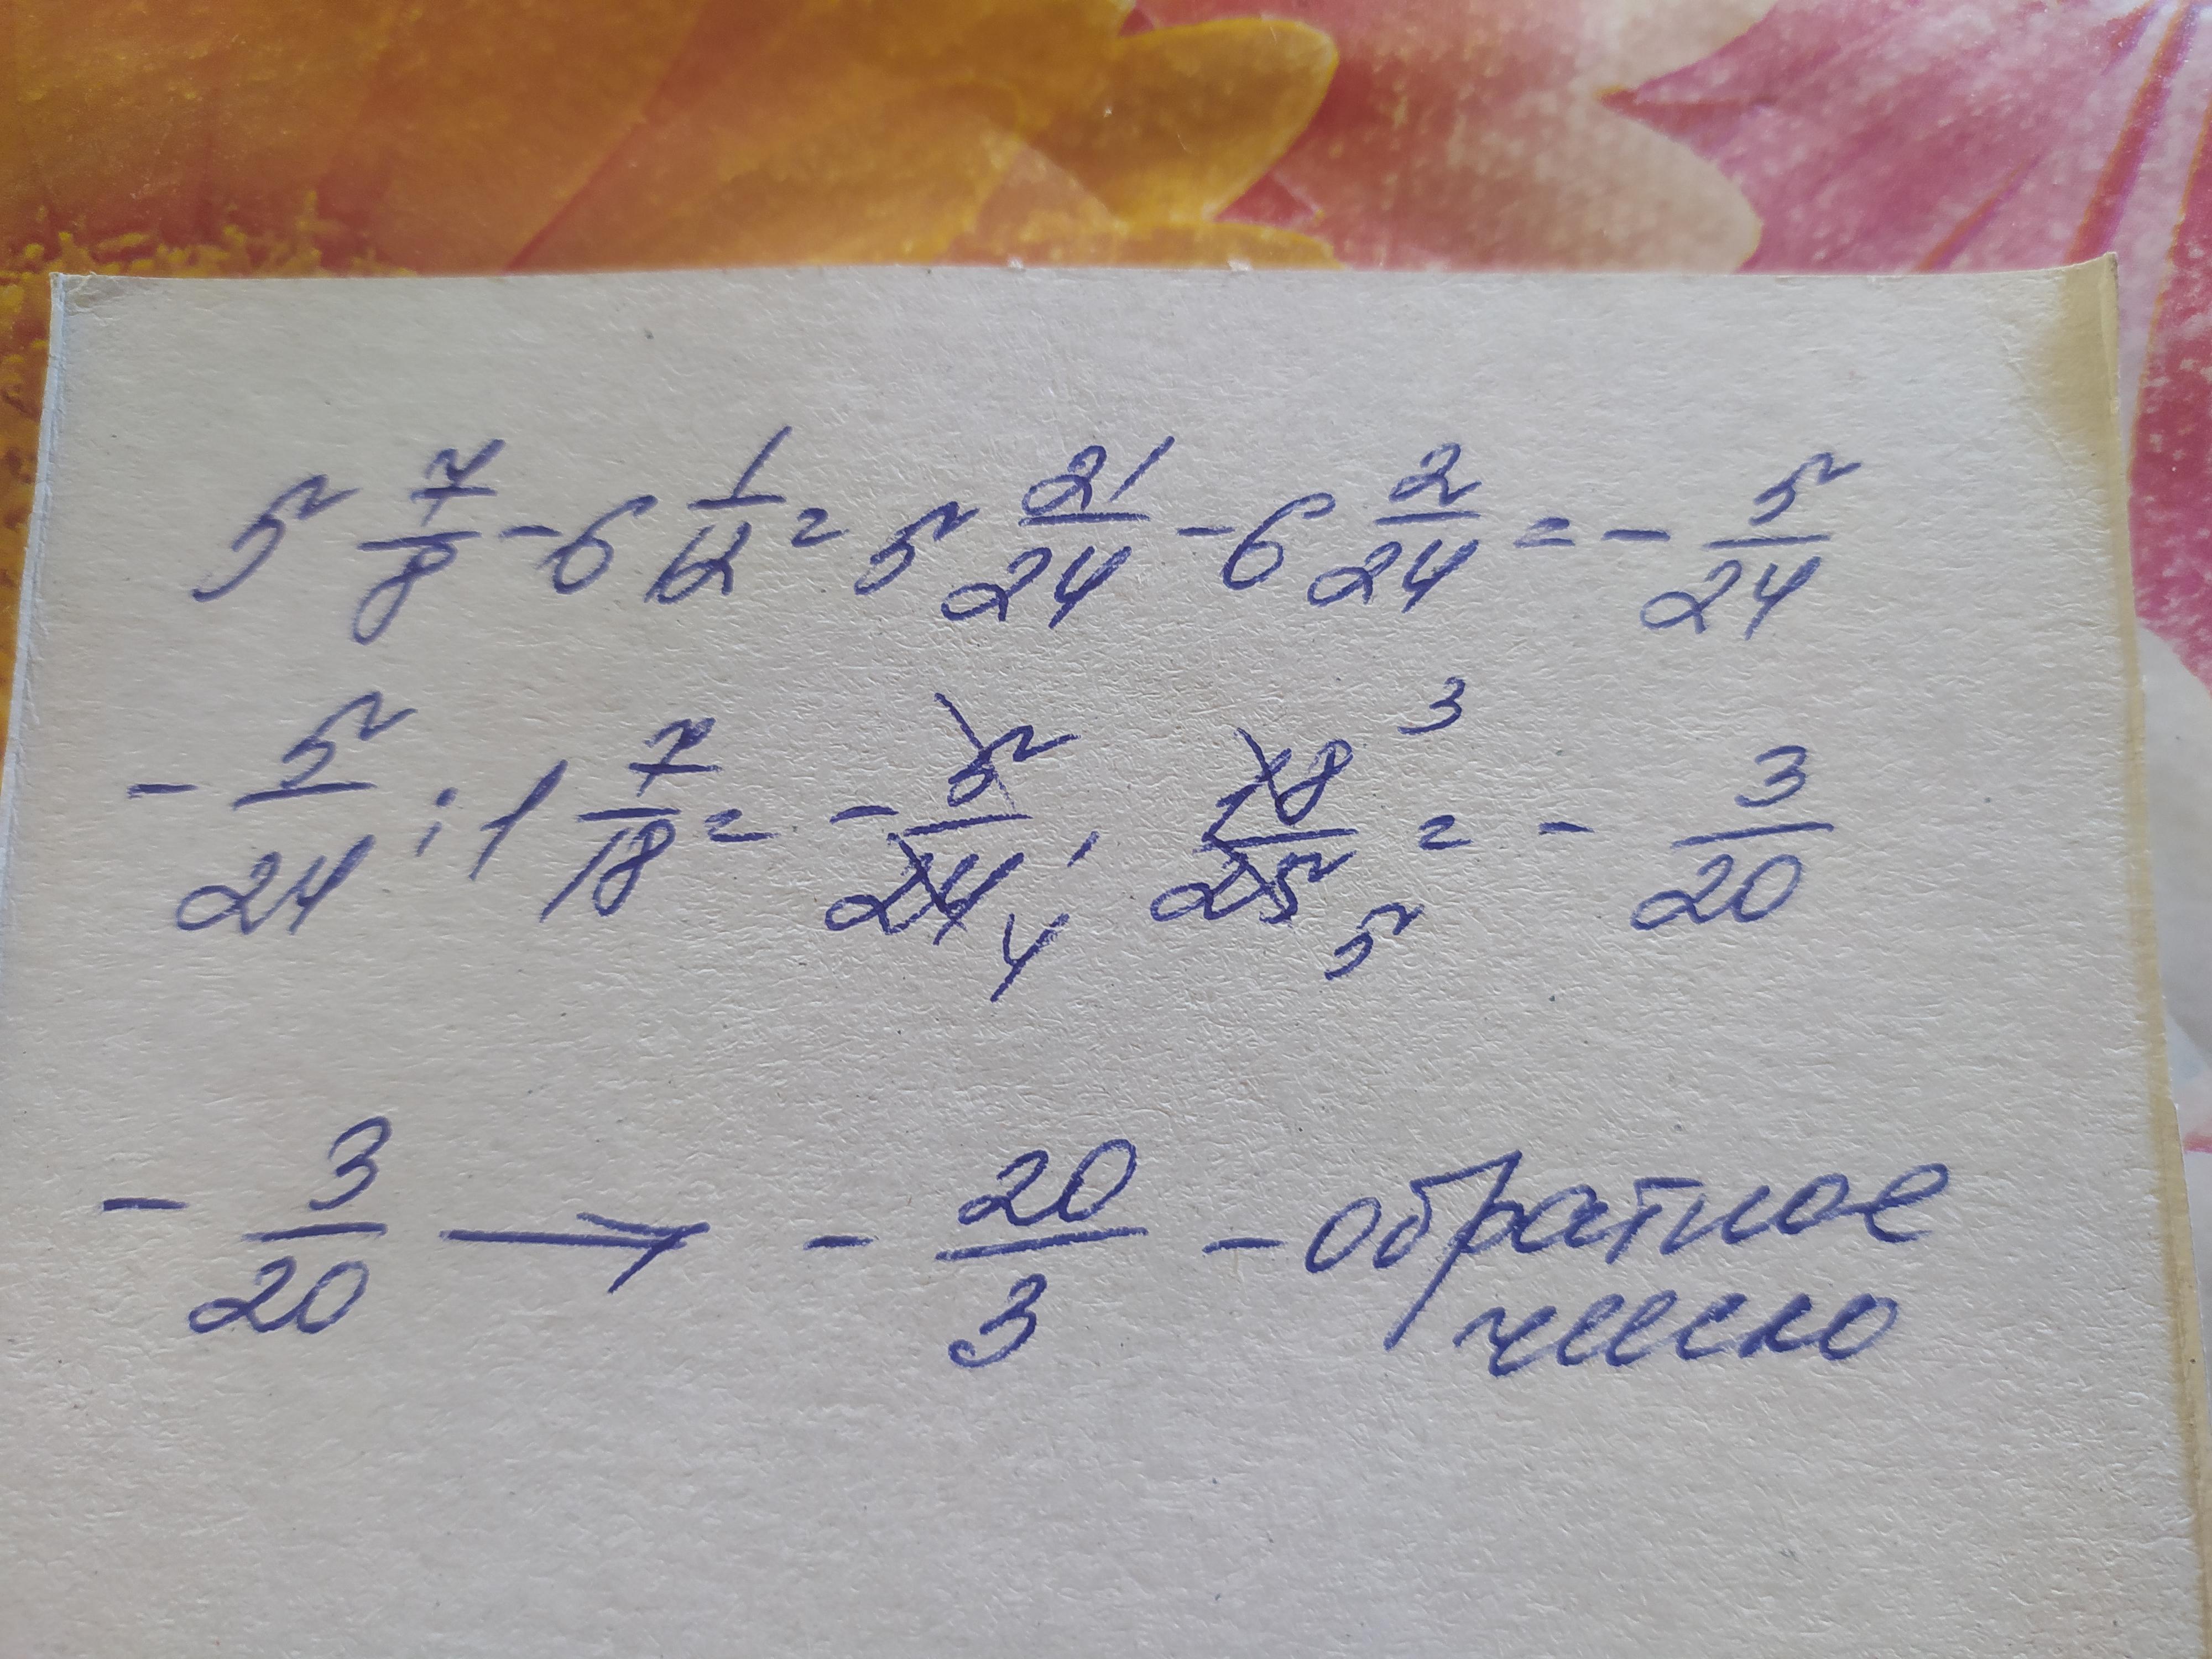 5 7/8 - 6 1/12 = 5 21/24 - 6 2/24 = - 5/24
- 5/24 : 1 7/18 = - 5/24 4 · 18/25 3 5 = - 3/20
- 3/20 → - 20/3 - обратное
число